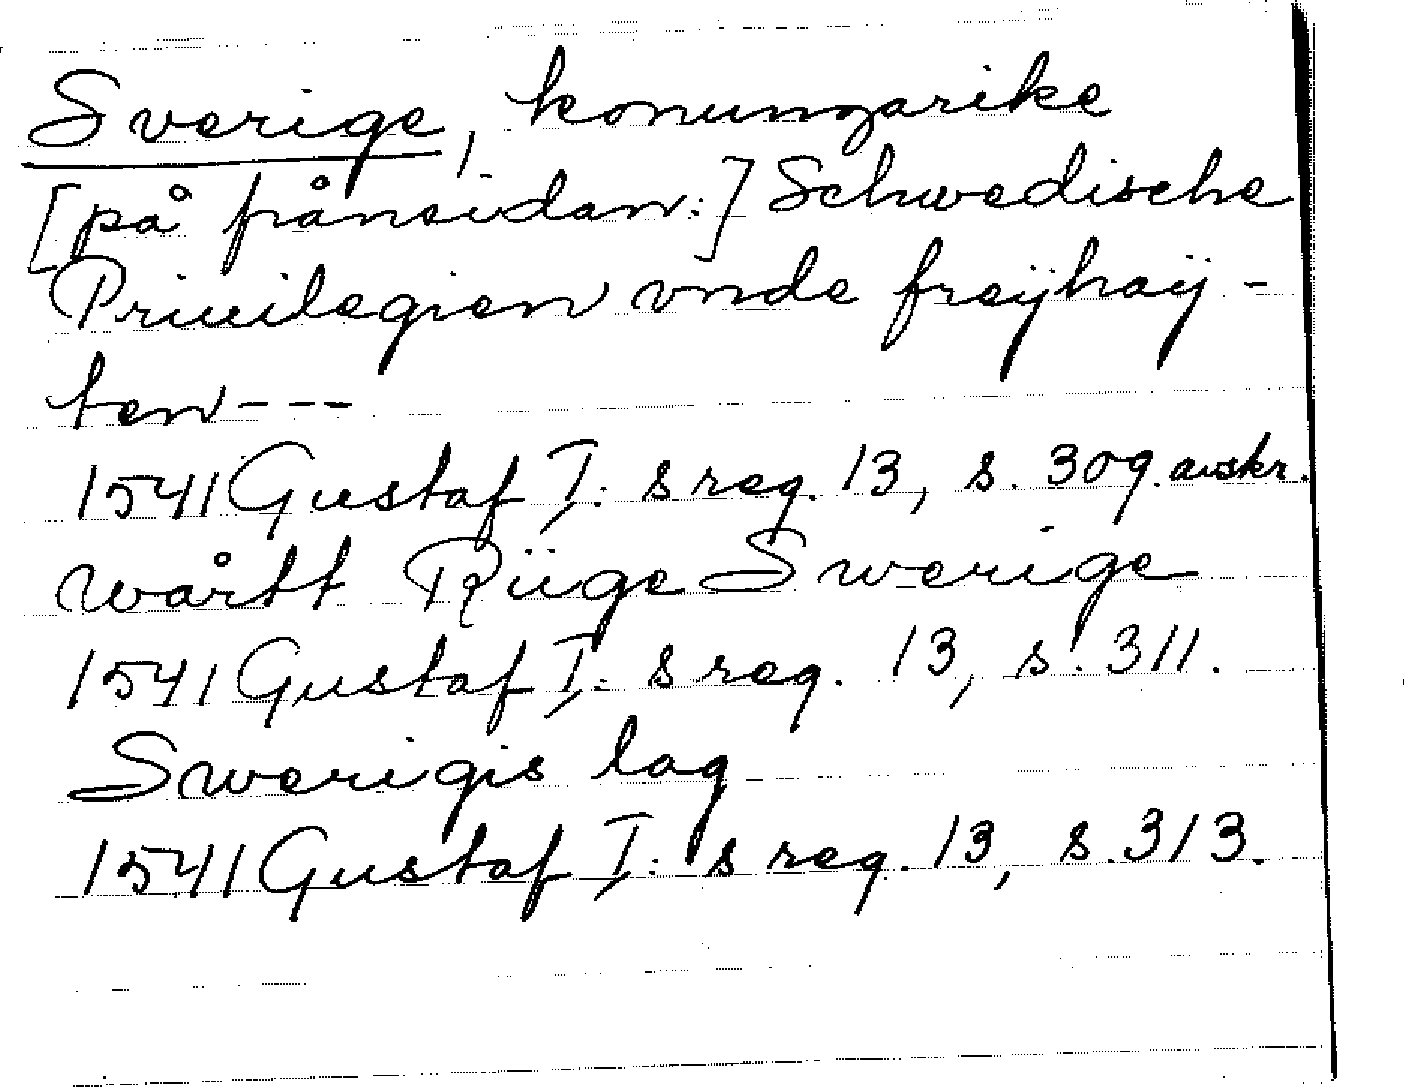 Sverige, konungarike
[på frånsidan:] Schwedische
Priuilegien vnde freÿhaÿ-
ten---
1541 Gustaf I:s reg. 13, s. 309. avskr.
wårtt Rüge Swerige
1541 Gustaf I:s reg. 13, s. 311.
Swerigis lag
1541 Gustaf I:s reg. 13, s. 313.